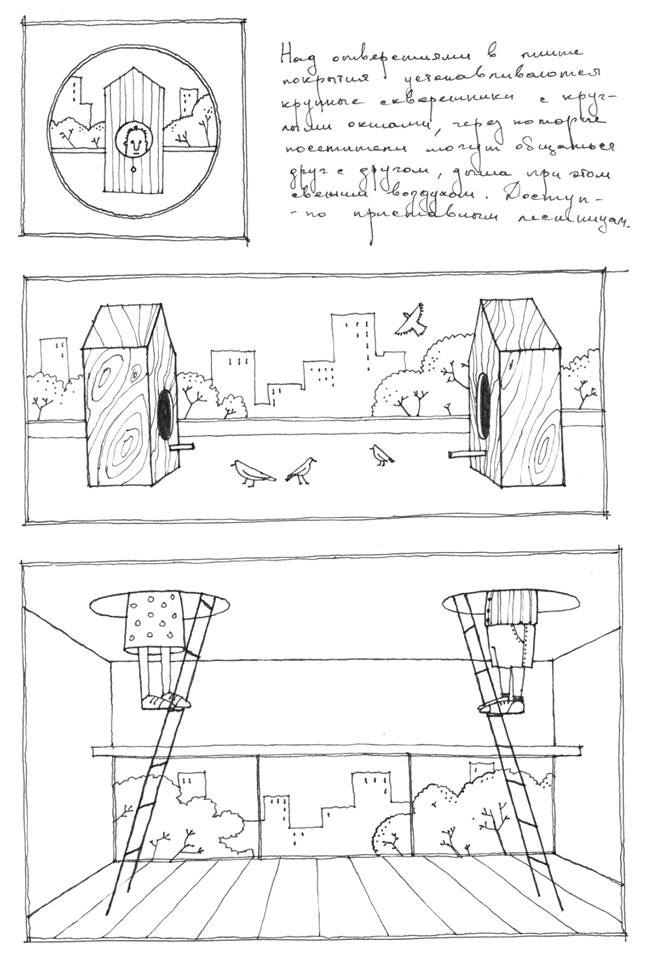 Над отверстиями в плите
покрытия устанавливаются
крупные скворешники с круг-
лыми окнами, через которые
посетители могут общаться
друг с другом, дыша при этом
свежим воздухом. Доступ -
- по приставным лестницам.